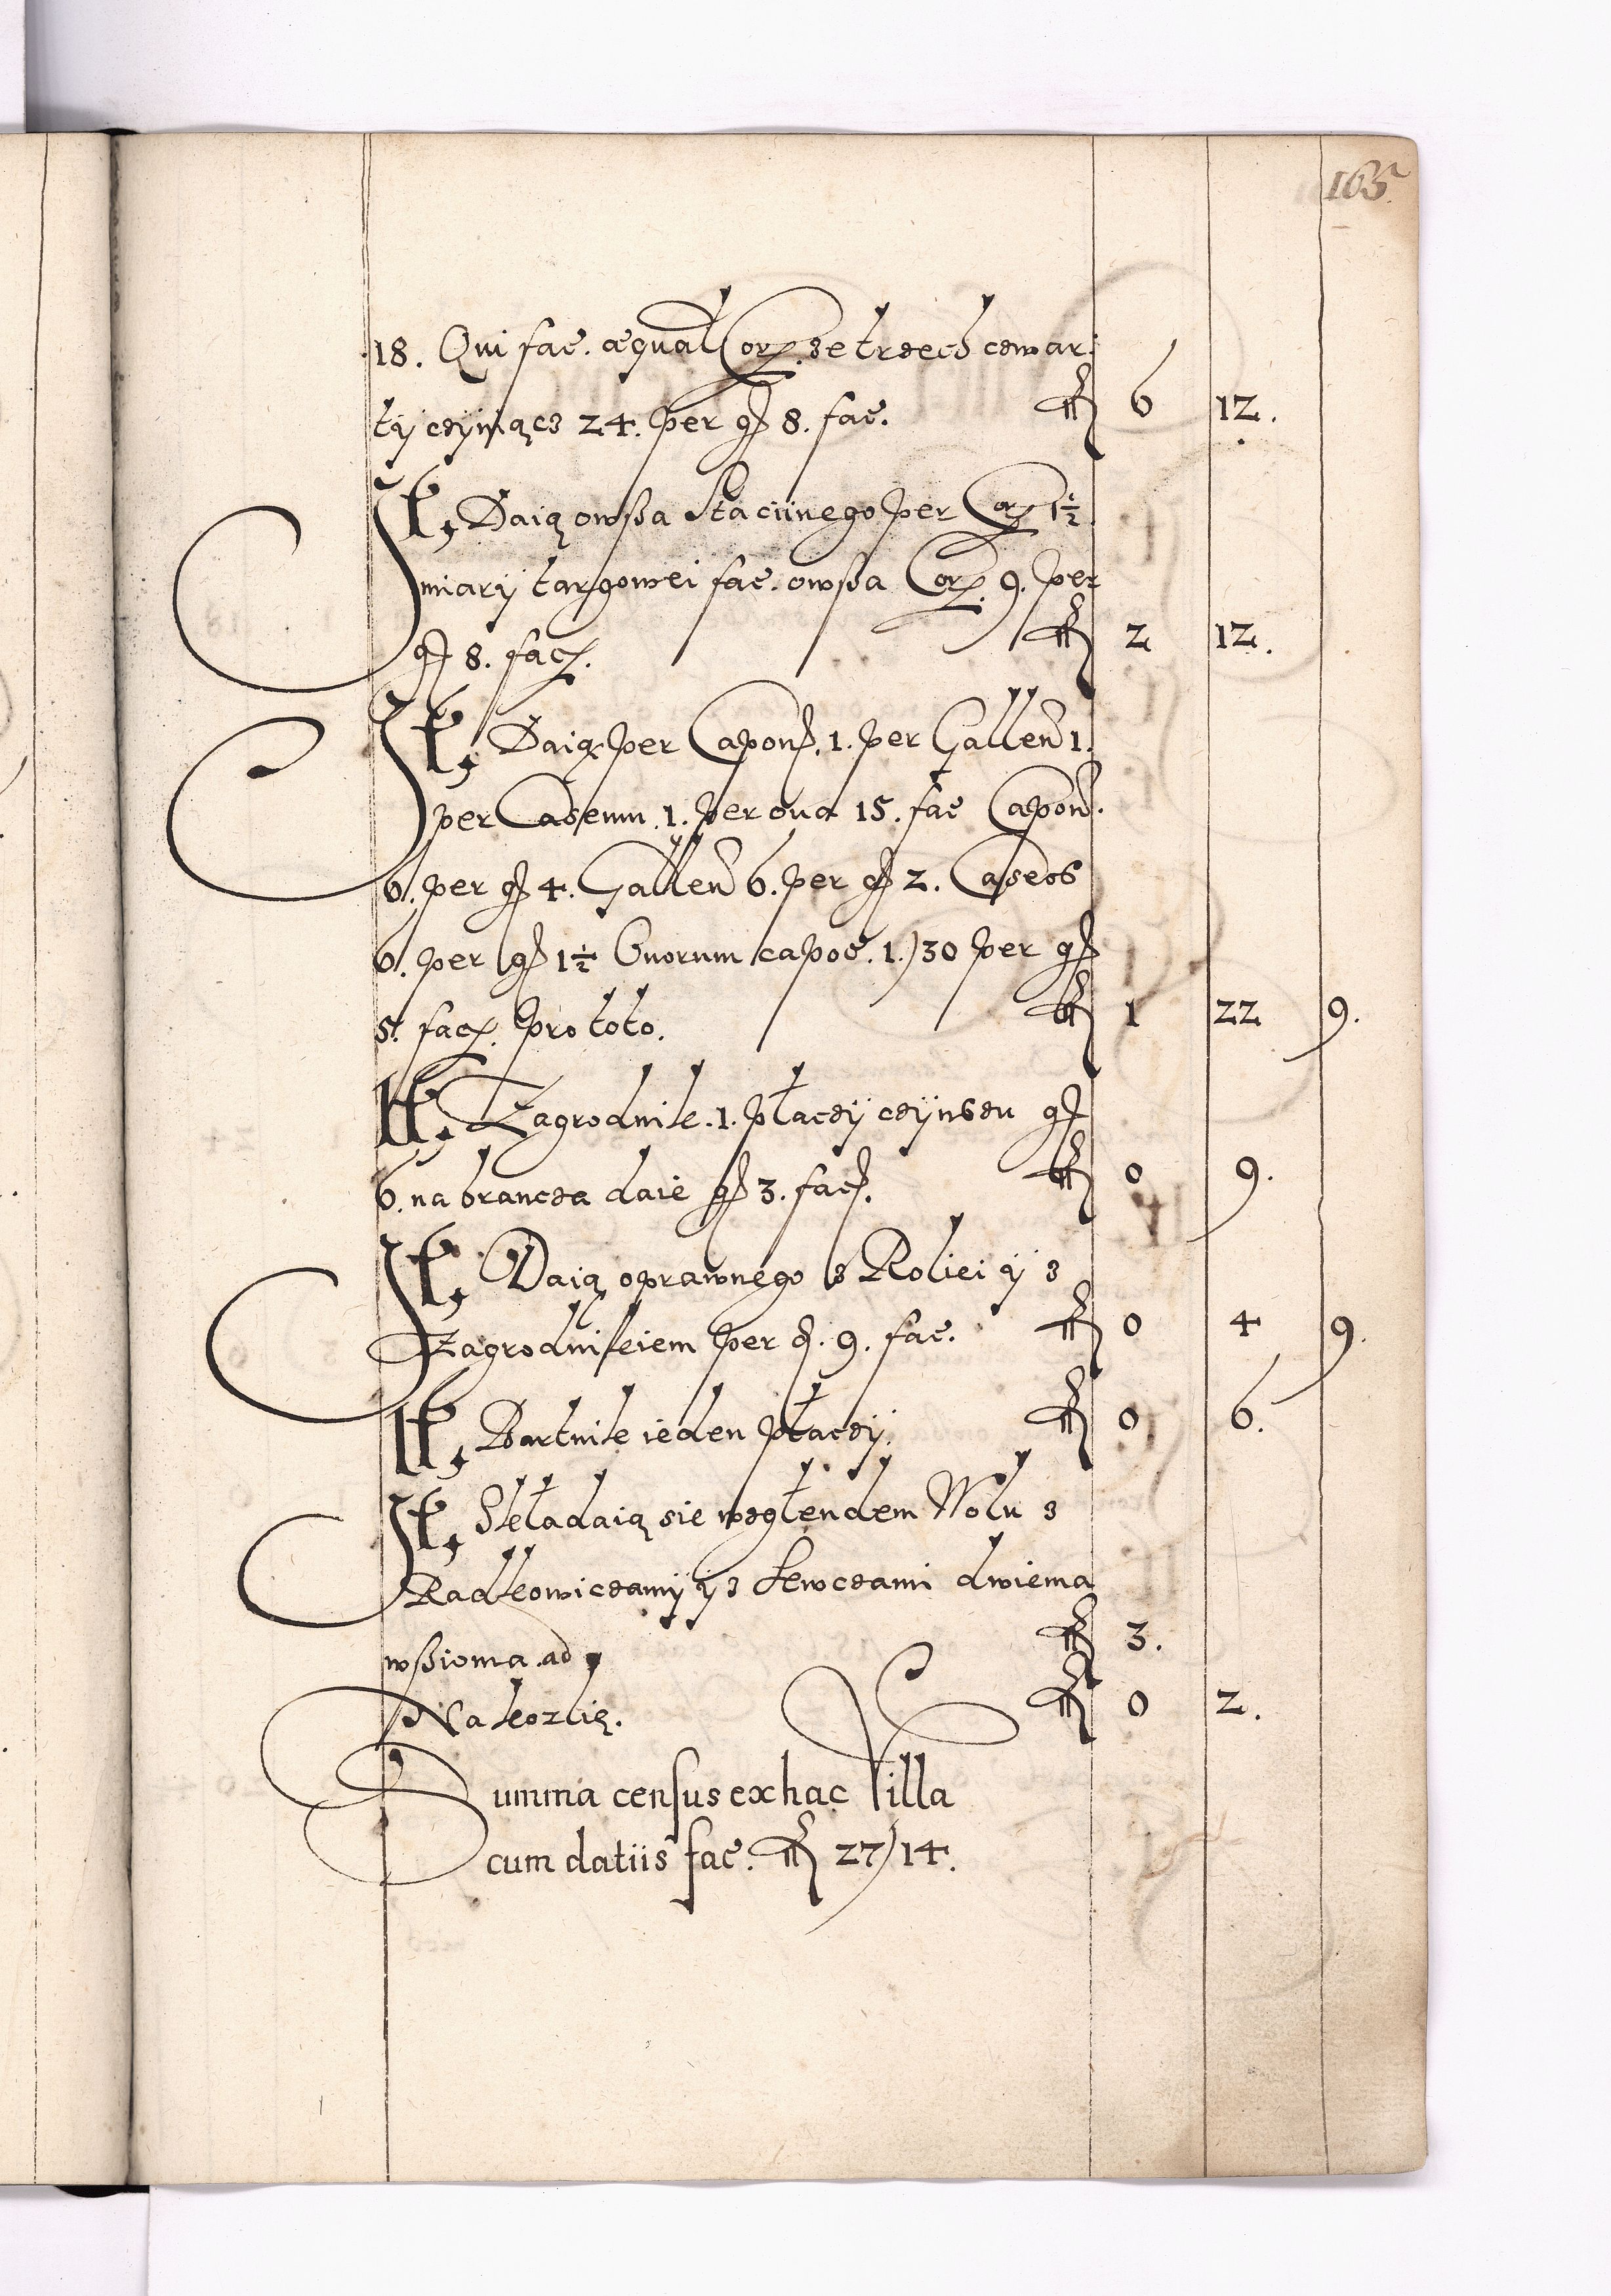 165
18. Qui fac. æqual Corz. ze trzech czwar:
ty czyniącz 24. per gr 8. fac. fl 6 12.
It, Daią owßa Staciinego per Corz 1½
miary targowei fac. owßa Corz. 9. per
gr 8. fac. fl 2 12.
It, Daią per Capon. 1. per Gallen 1.
per Caseum .1. per oua 15. fac Capon.
6. per gr 4. Gallen 6. per gr 2. Caseos
6. per gr 1½ Ouorum capoe. 1.)30 per gr
5. fac. pro toto. fl 1 22 9.
It, Zagrodnik .1. płaczy czynszu gr
6. na brancza daie gr 3. fac. fl 0 9.
It, Daią oprawnego z Roliei y z
Zagrodnikiem per d. 9. fac. fl 0 4 9.
It, Bartnik ieden płaczy. fl 0 6.
It, Składaią sie wzglendem Wołu z
Radkowiczamy y z Lewczami dwiema
wßioma ad fl 3.
Na kozlię. fl 0 2.
Summa census ex hac Villa
cum datiis fac. fl 27)14.